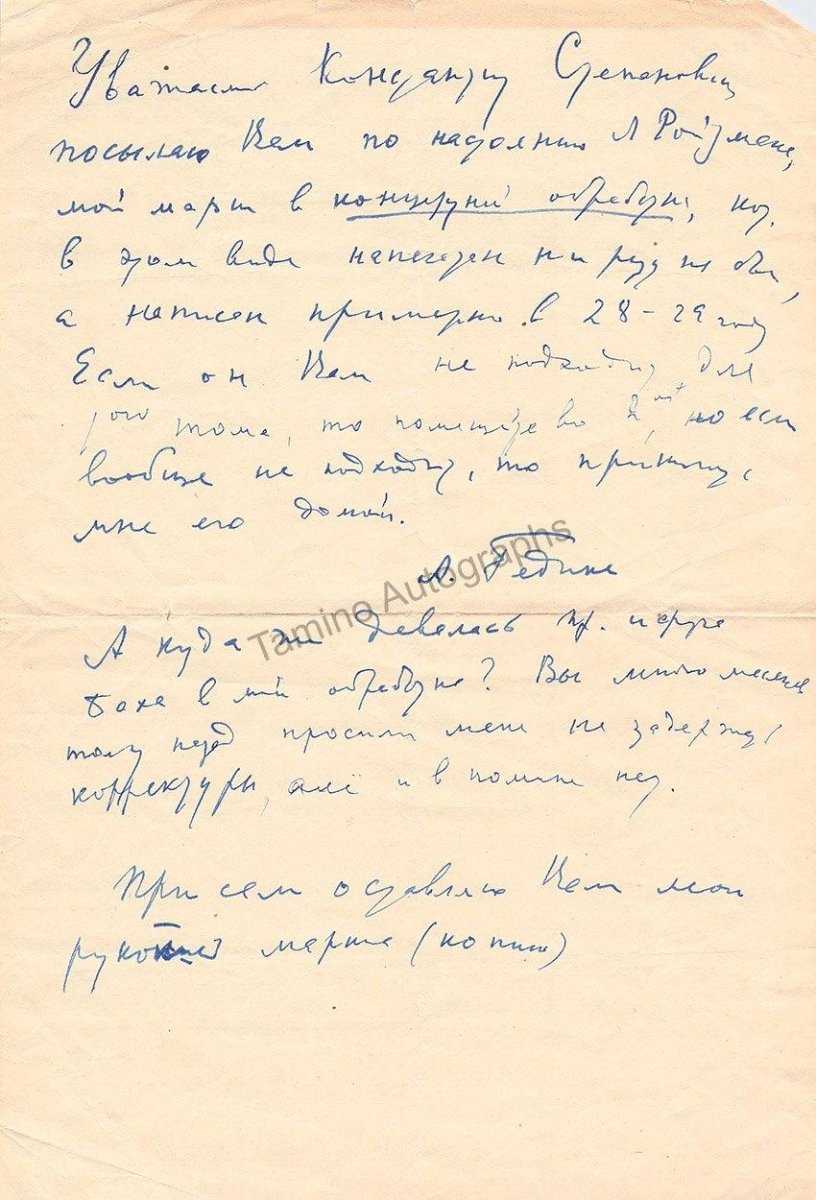 Уважаемый Константин Степанович
посылаю Вам по настоянию Л Ройзмана,
мой марш в концертной обработке, кот.
в этом виде напечатан ни разу не был,
а написан примерно в 28-29 году
Если он Вам не подходит для
этого тома, то поместите во 2й, но если
вообще не подходит, то
мне его домой.
А. Гедике
Tamino Autographs
А куда же девалась
Баха в моей обработке? Вы много месяцев
тому назад просили меня не задержать
корректуры, а её и в помине нет.
При сем оставляю Вам мою
марша (копию)